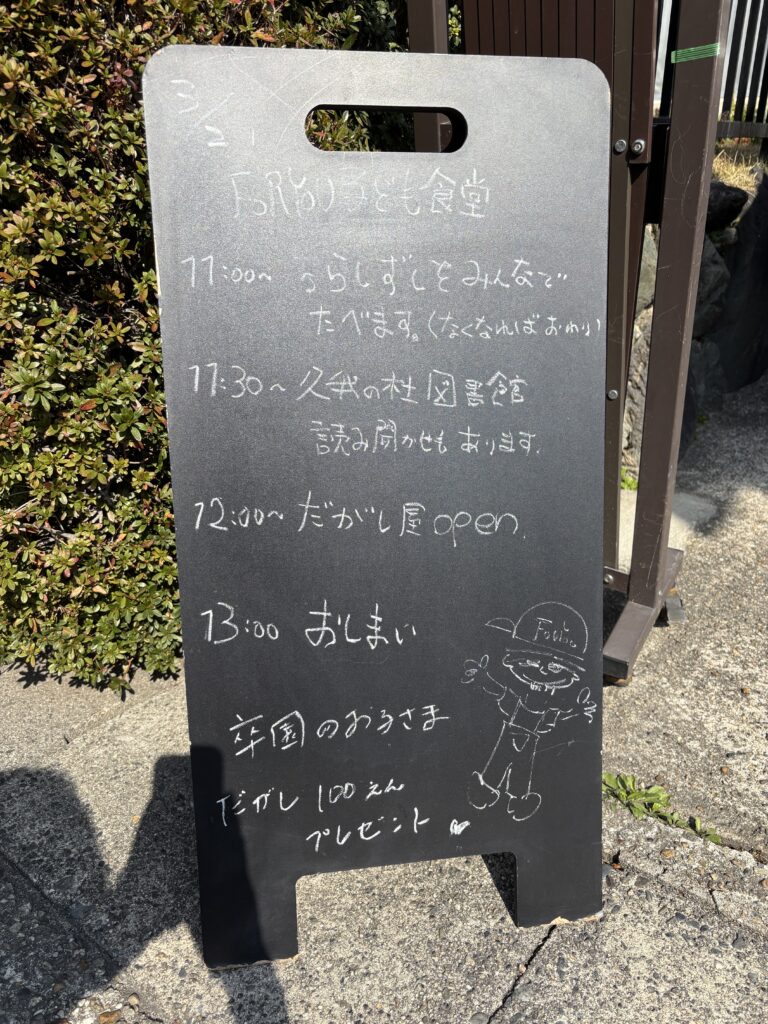 3/2
FoRYoU子ども食堂
11:00~ ちらしずしをみんなで
たべます。(なくなればおわり)
11:30~ 久我の杜図書館
読み聞かせもあります.
12:00~ だがし屋open.
13:00 おしまい
卒園のお子さま
だがし 100えん
プレゼント